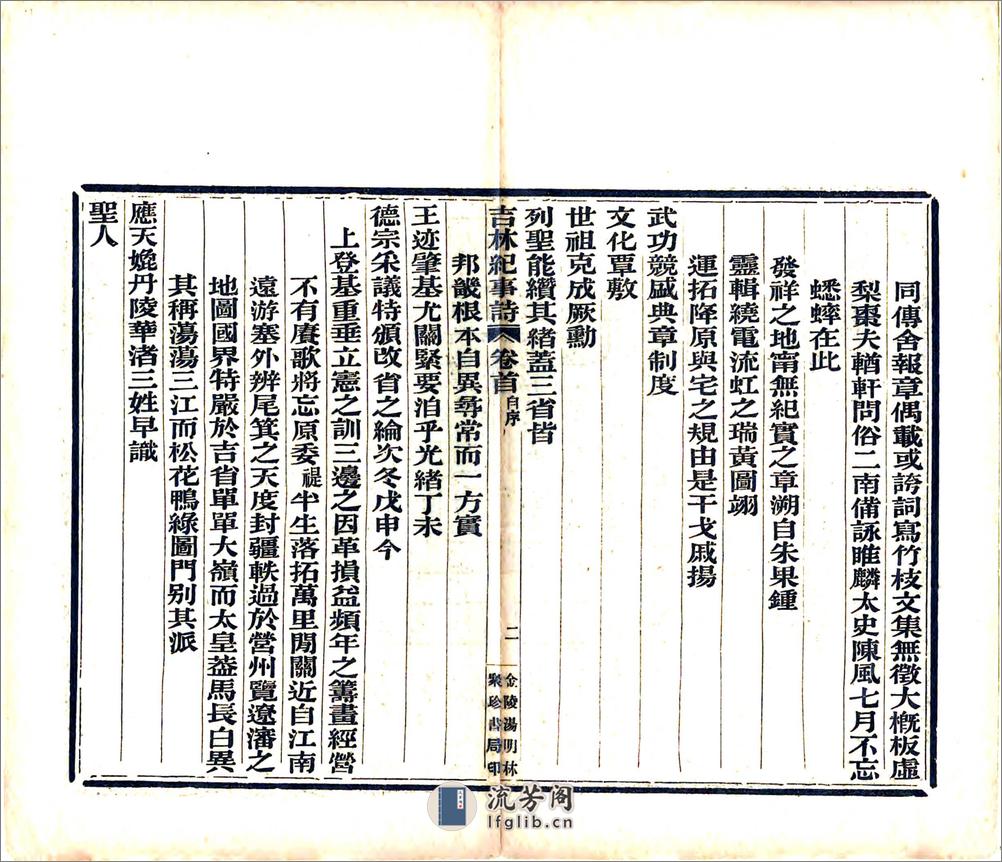 同傳舍報章偶載或誇詞寫竹枝文集無徵大槪板虛
梨棗夫輶軒問俗二南備詠睢麟太史陳風七月不忘
蟋蟀在此
發祥之地甯無紀實之章溯自朱果鍾
靈輯繞電流虹之瑞黃圖翊
運拓降原與宅之規由是干戈戚揚
武功競盛典章制度
文化覃敷
世祖克成厥勳
列聖能纘其緒蓋三省皆
吉林紀事詩 卷首 自序 二 金陵湯明林聚珍書局印
邦畿根本自異尋常而一方實
王迹肇基尤關緊要洎乎光緒丁未
德宗采議特頒改省之綸次冬戊申今
上登基重垂立憲之訓三邊之因革損益頻年之籌畫經營
不有賡歌將忘原委禔半生落拓萬里閒關近自江南
遠游塞外辨尾箕之天度封疆軼過於營州覽遼瀋之
地圖國界特嚴於吉省單單大嶺而太皇葢馬長白異
其稱蕩蕩三江而松花鴨綠圖門別其派
應天娩丹陵華渚三姓早識
聖人
流芳阁
lfglib.cn